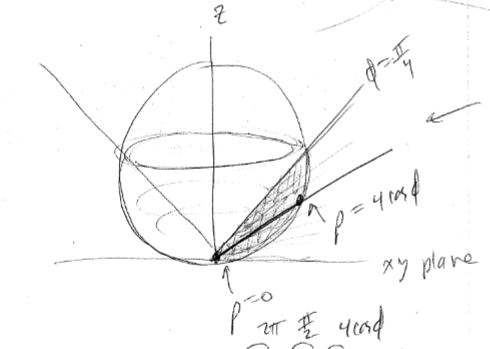 z
φ=π/4
ρ=4cosφ
xy plane
ρ=0
2π π/2 4cosφ